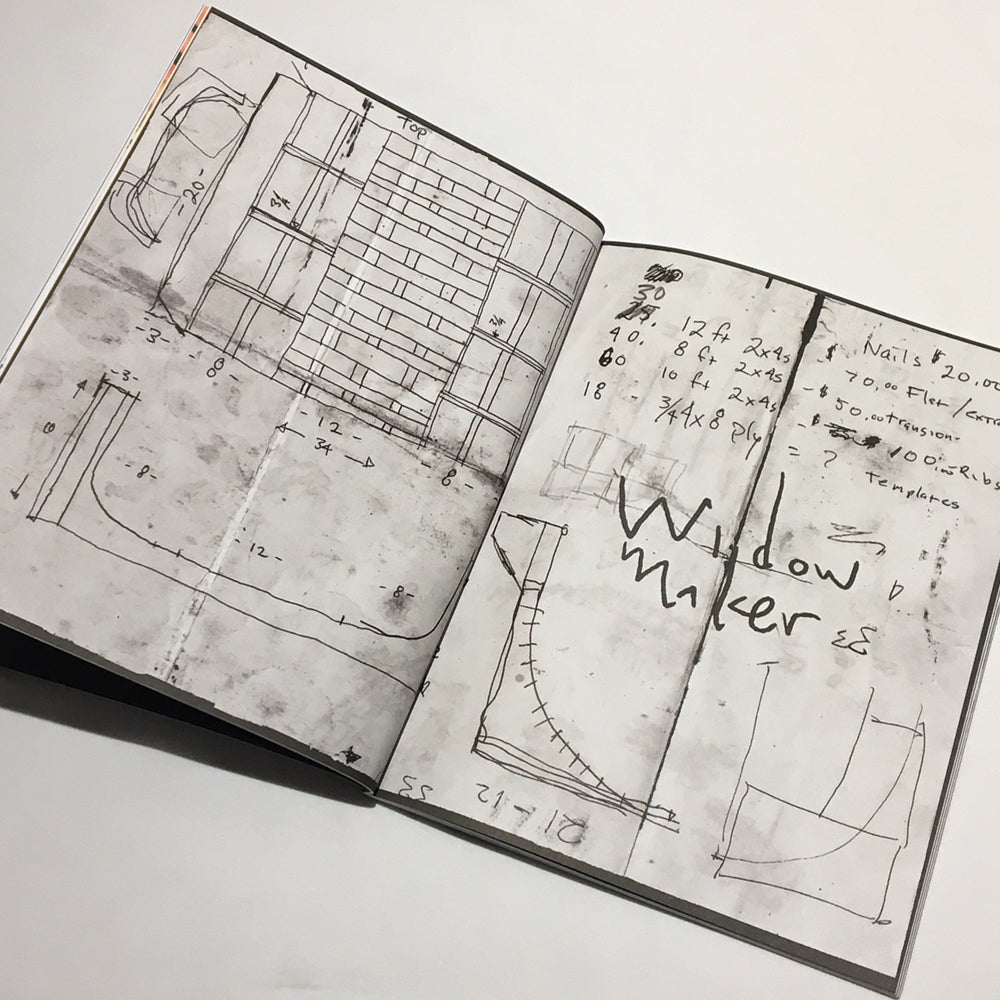 Top
-20-
3/4
3/4
-3-
-8-
-12-
34
-8-
-3-
8
-8-
-12-
-8-
30
25. 12 ft 2x4s
40. 8 ft 2x4s
60 10 ft 2x4s
18 - 3/4 4x8 ply
$ Nails $ 20.00
70.00 Flat/extra
-$ 50.00 transion-
-$ 100.00 Ribs
= ? templates
Widow
Maker